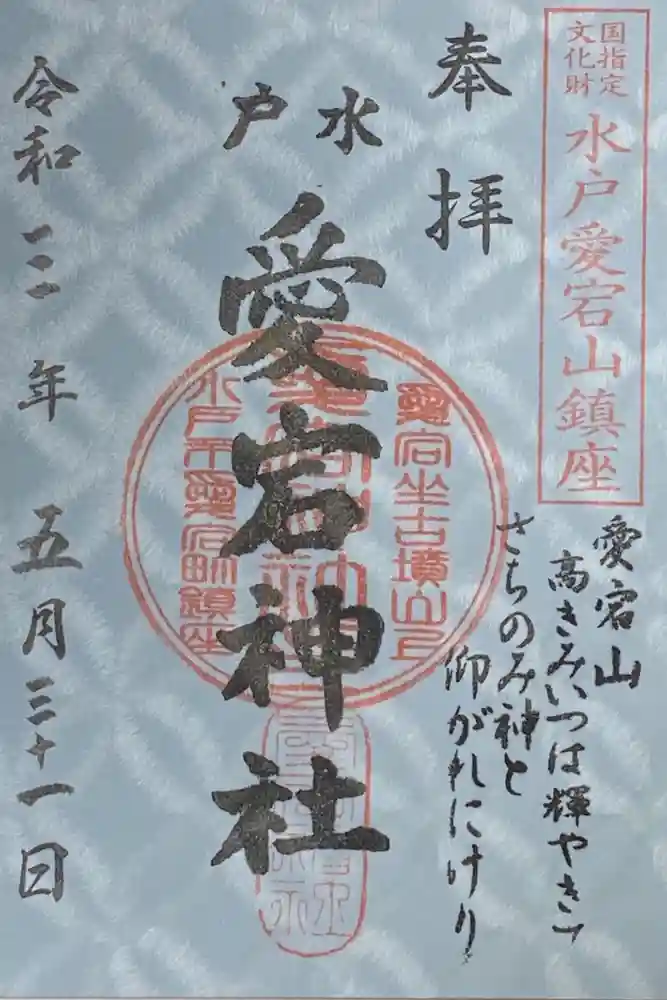 国指定
文化財
水戸愛宕山鎮座
奉拝
水戸
愛宕神社
愛宕坐古墳山上
水戸市愛宕町鎮座
愛宕山
高きみいつは輝やきて
さちのみ神と
仰がれにけり
令和二年五月三十一日